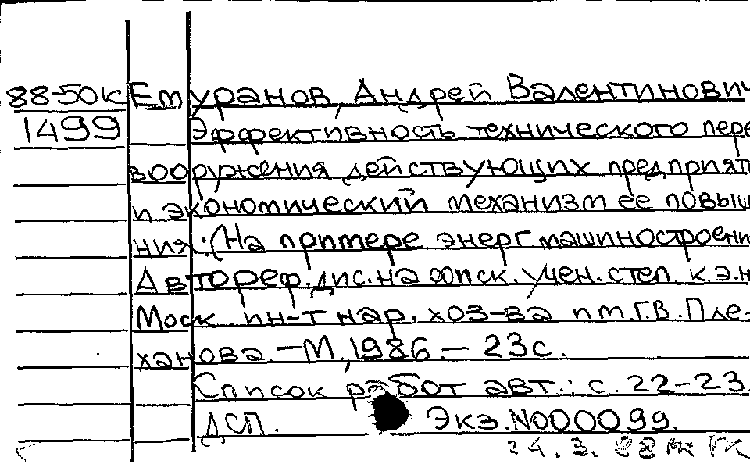 88-50к Емуранов, Андрей Валентинович
1499 Эффективность технического пере
вооружения действующих предприят
и экономический механизм ее повыш
ния: (На примере энерг. машиностроени
Автореф. дис. на соиск. учен. степ. к.э.н
Моск. ин-т нар. хоз-ва им. Г.В. Пле-
ханова. - М., 1986. - 23с.
Список работ авт.: с. 22-23
ДСП. Экз. N000099.
24.3.88